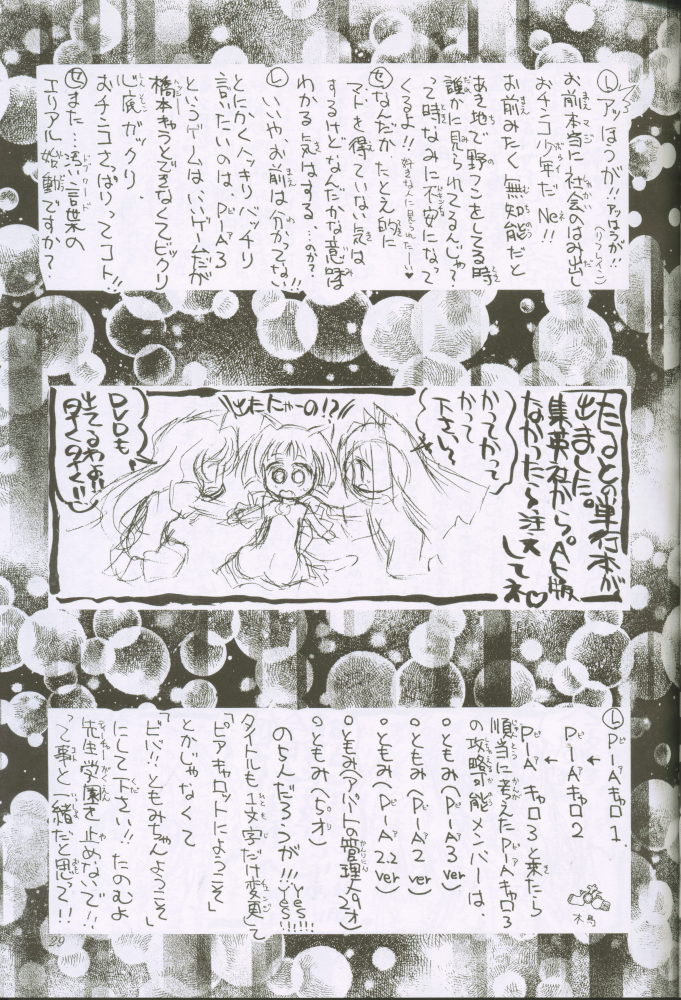 Ⓛアッはうが!!アッはうが!!(リフレイン)
お前本当に社会のはみ出し
おチンコ少年だNe!!
お前みたく無知能だと
あき地で野〇こをしてる時
誰かに見られてるんじゃ?
って時なみに不安になって
くるよ!!好きな人に見られたー♥
Ⓢなんだか、たとえ的に
マトを得ていない気は
するけどなんだかな意味は
わかる気はする…のか?
Ⓛいいや、お前は分かってない!!
とにかくハッキリバッチリ
言いたいのは、P・A3
というゲームはいいゲームだが
橋本キャラどきなくてビックリ
心底ガックリ
おチンコさぱりってコト!!
Ⓢまた…汚い言葉の
エリアル始動ですか?
たるとの単行本が
出ました。
集英社から。A5版
なかったら注文
してネ♡
かってかって
かって
下さい〜
出たにゃーの!?
DVDも
出てるわよ!!
早く早く!!
ⓁP・Aキャロ1.
↓
P・Aキャロ2
↓
P・Aキャロ3と来たら
順当に考えたP・Aキャロ3
の攻略可能メンバーは、
○ともみ(P・A3ver)
○ともみ(P・A2ver)
○ともみ(P・A2.2ver)
○ともみ(アパートの管理人29才)
○ともみ(5才)
のちんだろうが!!!yes!!yes!!!
タイトルも1文字だけ変更して
「ピアキャロットにようこそ」
とかじゃなくて
「ピバ!!ともみちゃんようこそ」
にして下さい!!たのむよ
先生学園を止めないで!!
って事と一緒だと思って!!
29